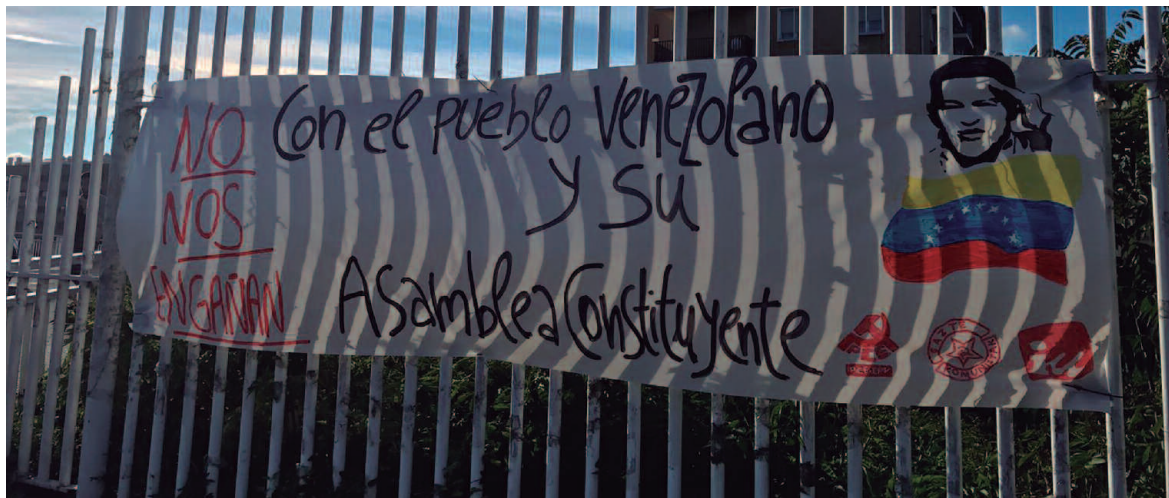 NO
NOS
ENGAÑAN
Con el pueblo Venezolano
y su
Asamblea Constituyente
iu